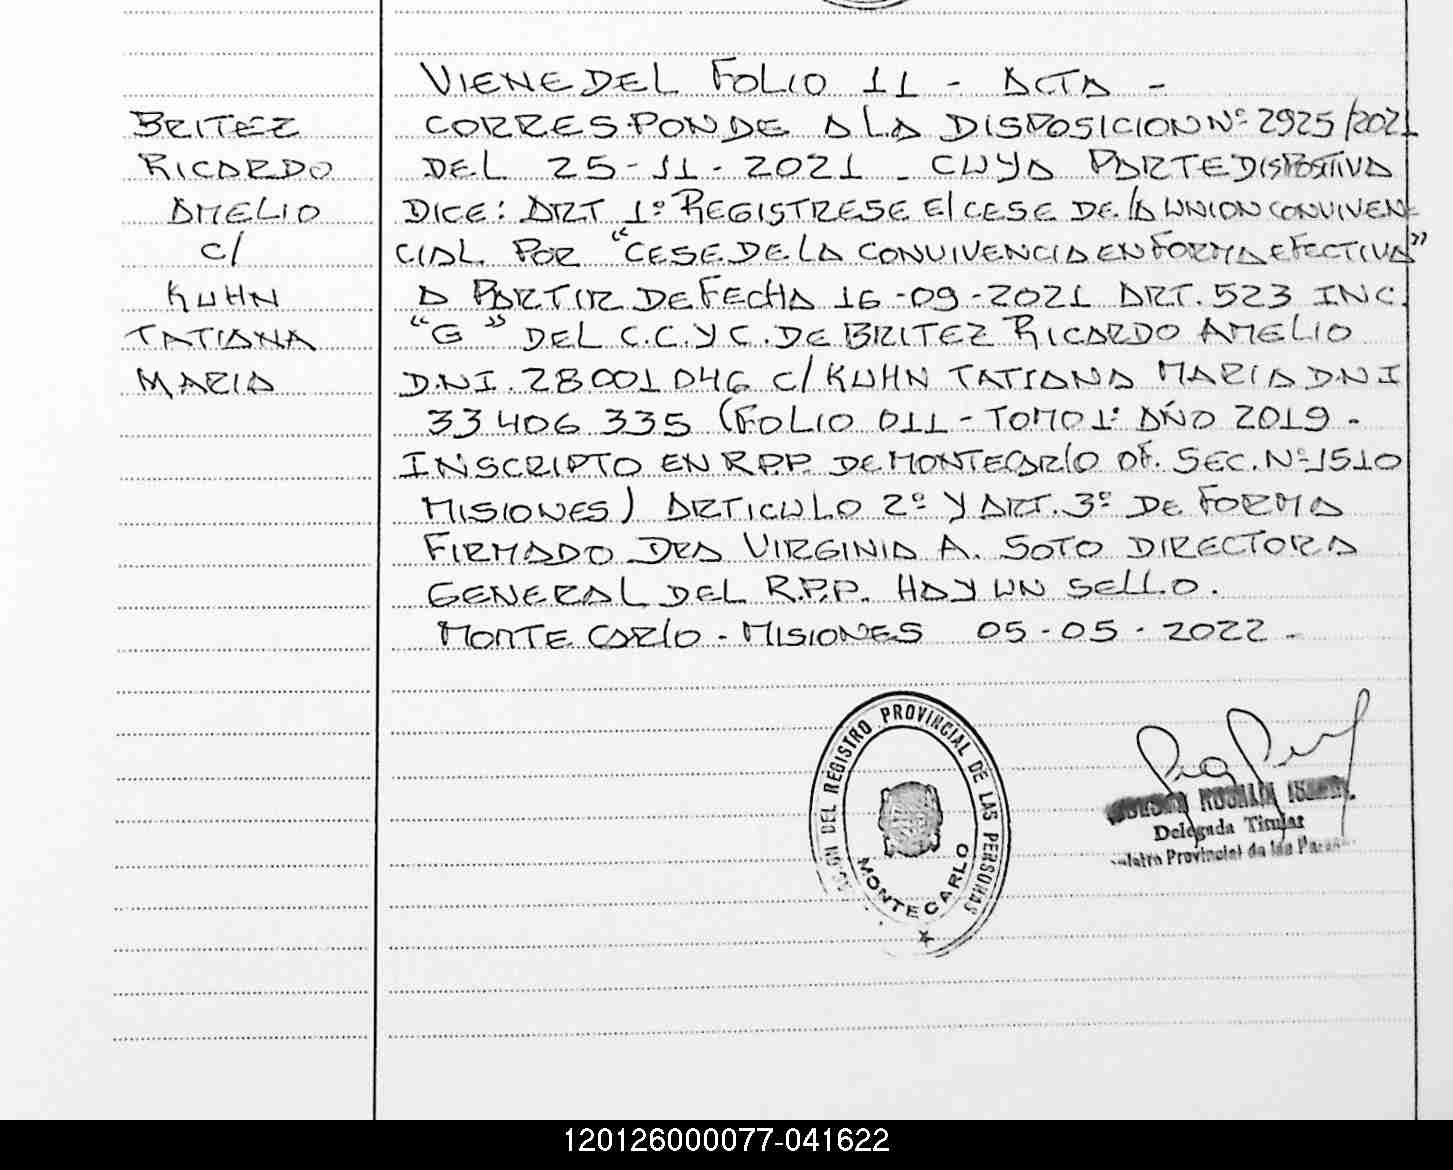 VIENE DEL FOLIO 11 - ACTA -
BRITEZ
RICARDO
AMELIO
C/
KUHN
TATIANA
MARIA
CORRESPONDE A LA DISPOSICION Nº 2925/2021
DEL 25-11-2021 - CUYA PARTE DISPOSITIVA
DICE: ART 1º REGISTRESE El CESE DE lA UNION CONVIVEN-
CIAL POR "CESE DE LA CONVIVENCIA EN FORMA EFECTIVA"
A PARTIR DE FECHA 16-09-2021 ART. 523 INC.
"G" DEL C.C.Y C. DE BRITEZ RICARDO AMELIO
D.N.I. 28001046 C/ KUHN TATIANA MARIA D.N.I
33 406 335 (FOLIO 011 - TOMO 1º AÑO 2019 -
INSCRIPTO EN R.P.P. DE MONTECARlO OF. SEC. Nº 1510
MISIONES) ARTICULO 2º Y ART. 3º DE FORMA
FIRMADO DRA VIRGINIA A. SOTO DIRECTORA
GENERAL DEL R.P.P. HAY UN SELLO.
MONTE CARlO - MISIONES 05-05-2022 -
DEL REGISTRO PROVINCIAL DE LAS PERSONAS
MONTECARLO
Delegada Titular
Provincial de las
120126000077-041622